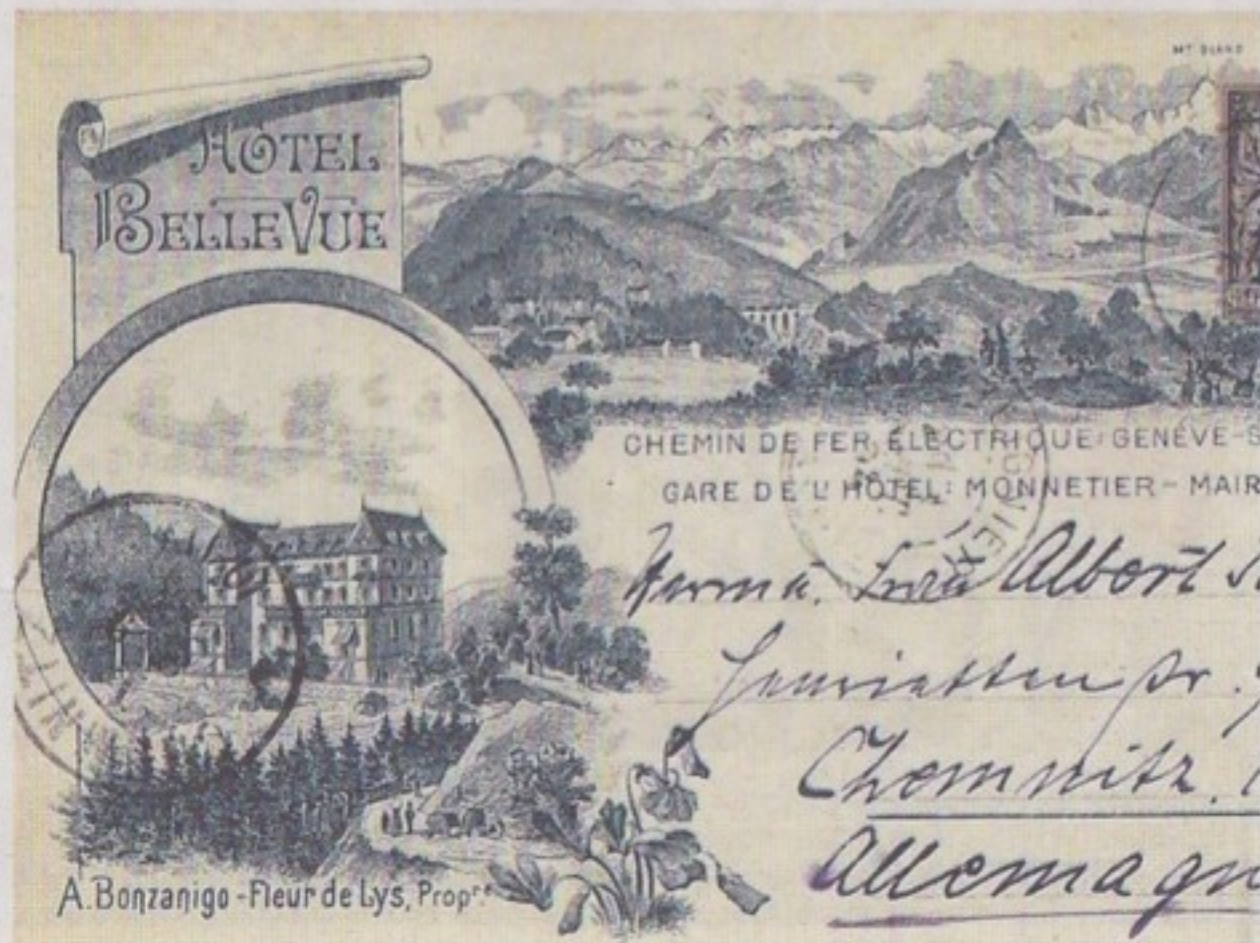 MT BLANC
HÔTEL
BELLEVUE
CHEMIN DE FER ÉLECTRIQUE: GENÈVE-S
GARE DE L'HÔTEL: MONNETIER-MAIR
Frau Albert
Chemnitz.
Allemagn
A. Bonzanigo-Fleur de Lys, Propr.